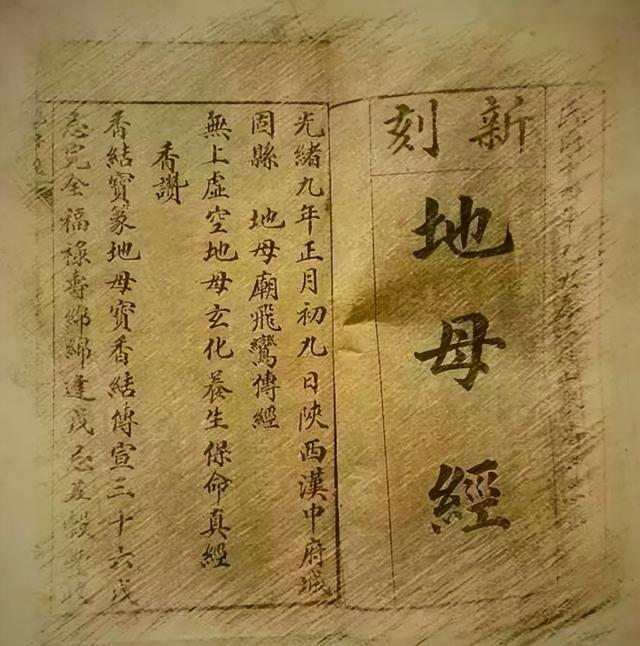 新刻
地母經
光緒九年正月初九日陝西漢中府城
固縣 地母廟飛鸞傳經
無上虛空地母玄化養生保命真經
香讚
香結寶篆地母寶香結傳宣三十六戊
忌完全福祿壽綿綿逢戊忌五穀豐